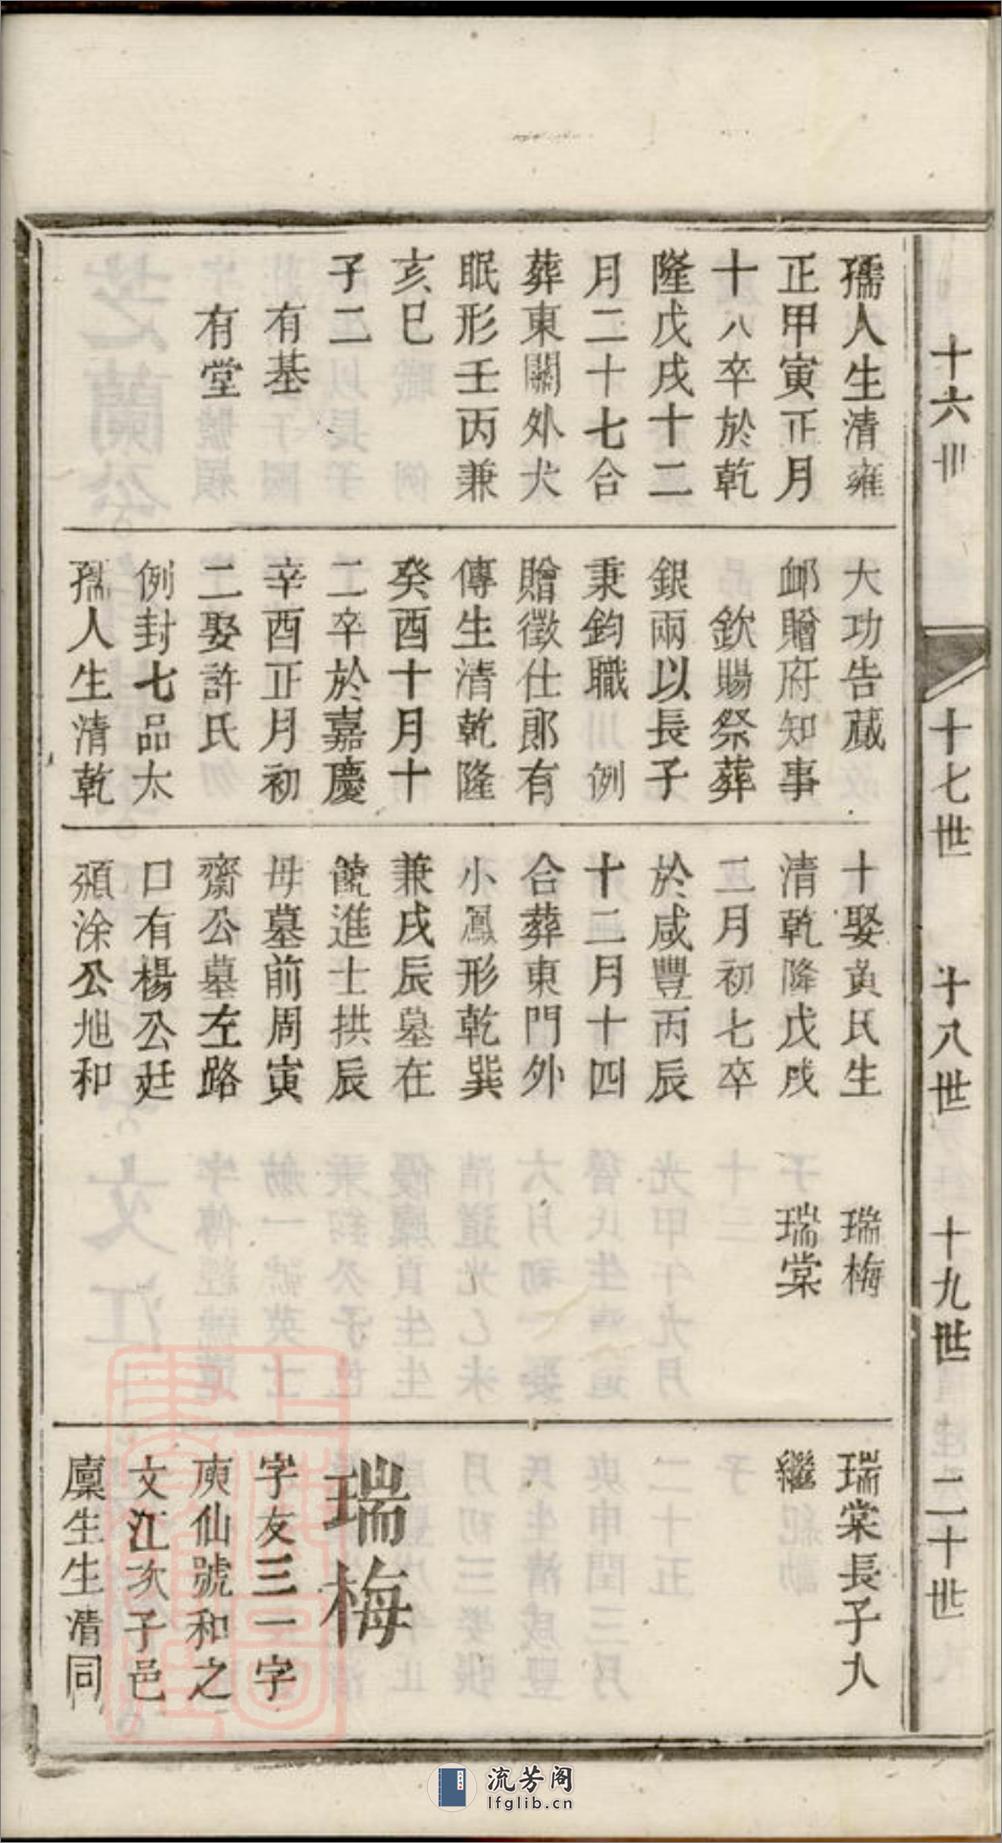 十六世
十七世
十八世
十九世
二十世
孺人生清雍
正甲寅正月
十八卒於乾
隆戊戌十二
月二十七合
葬東關外犬
眠形壬丙兼
亥巳
子二
有基
有堂
大功告蕆
卹贈府知事
欽賜祭葬
銀兩以長子
秉鈞職例
贈徵仕郎有
傳生清乾隆
癸酉十月十
二卒於嘉慶
辛酉正月初
二娶許氏
例封七品太
孺人生清乾
十娶黃氏生
清乾隆戊戌
二月初七卒
於咸豐丙辰
十二月十四
合葬東門外
小鳳形乾巽
兼戌辰墓在
饒進士拱辰
母墓前周寅
齋公墓左路
口有楊公廷
涂公旭和
瑞梅
瑞棠
瑞棠長子入
繼
瑞梅
字友三一字
庾仙號和之
文江次子邑
廩生生清同
流芳阁
lfglib.cn